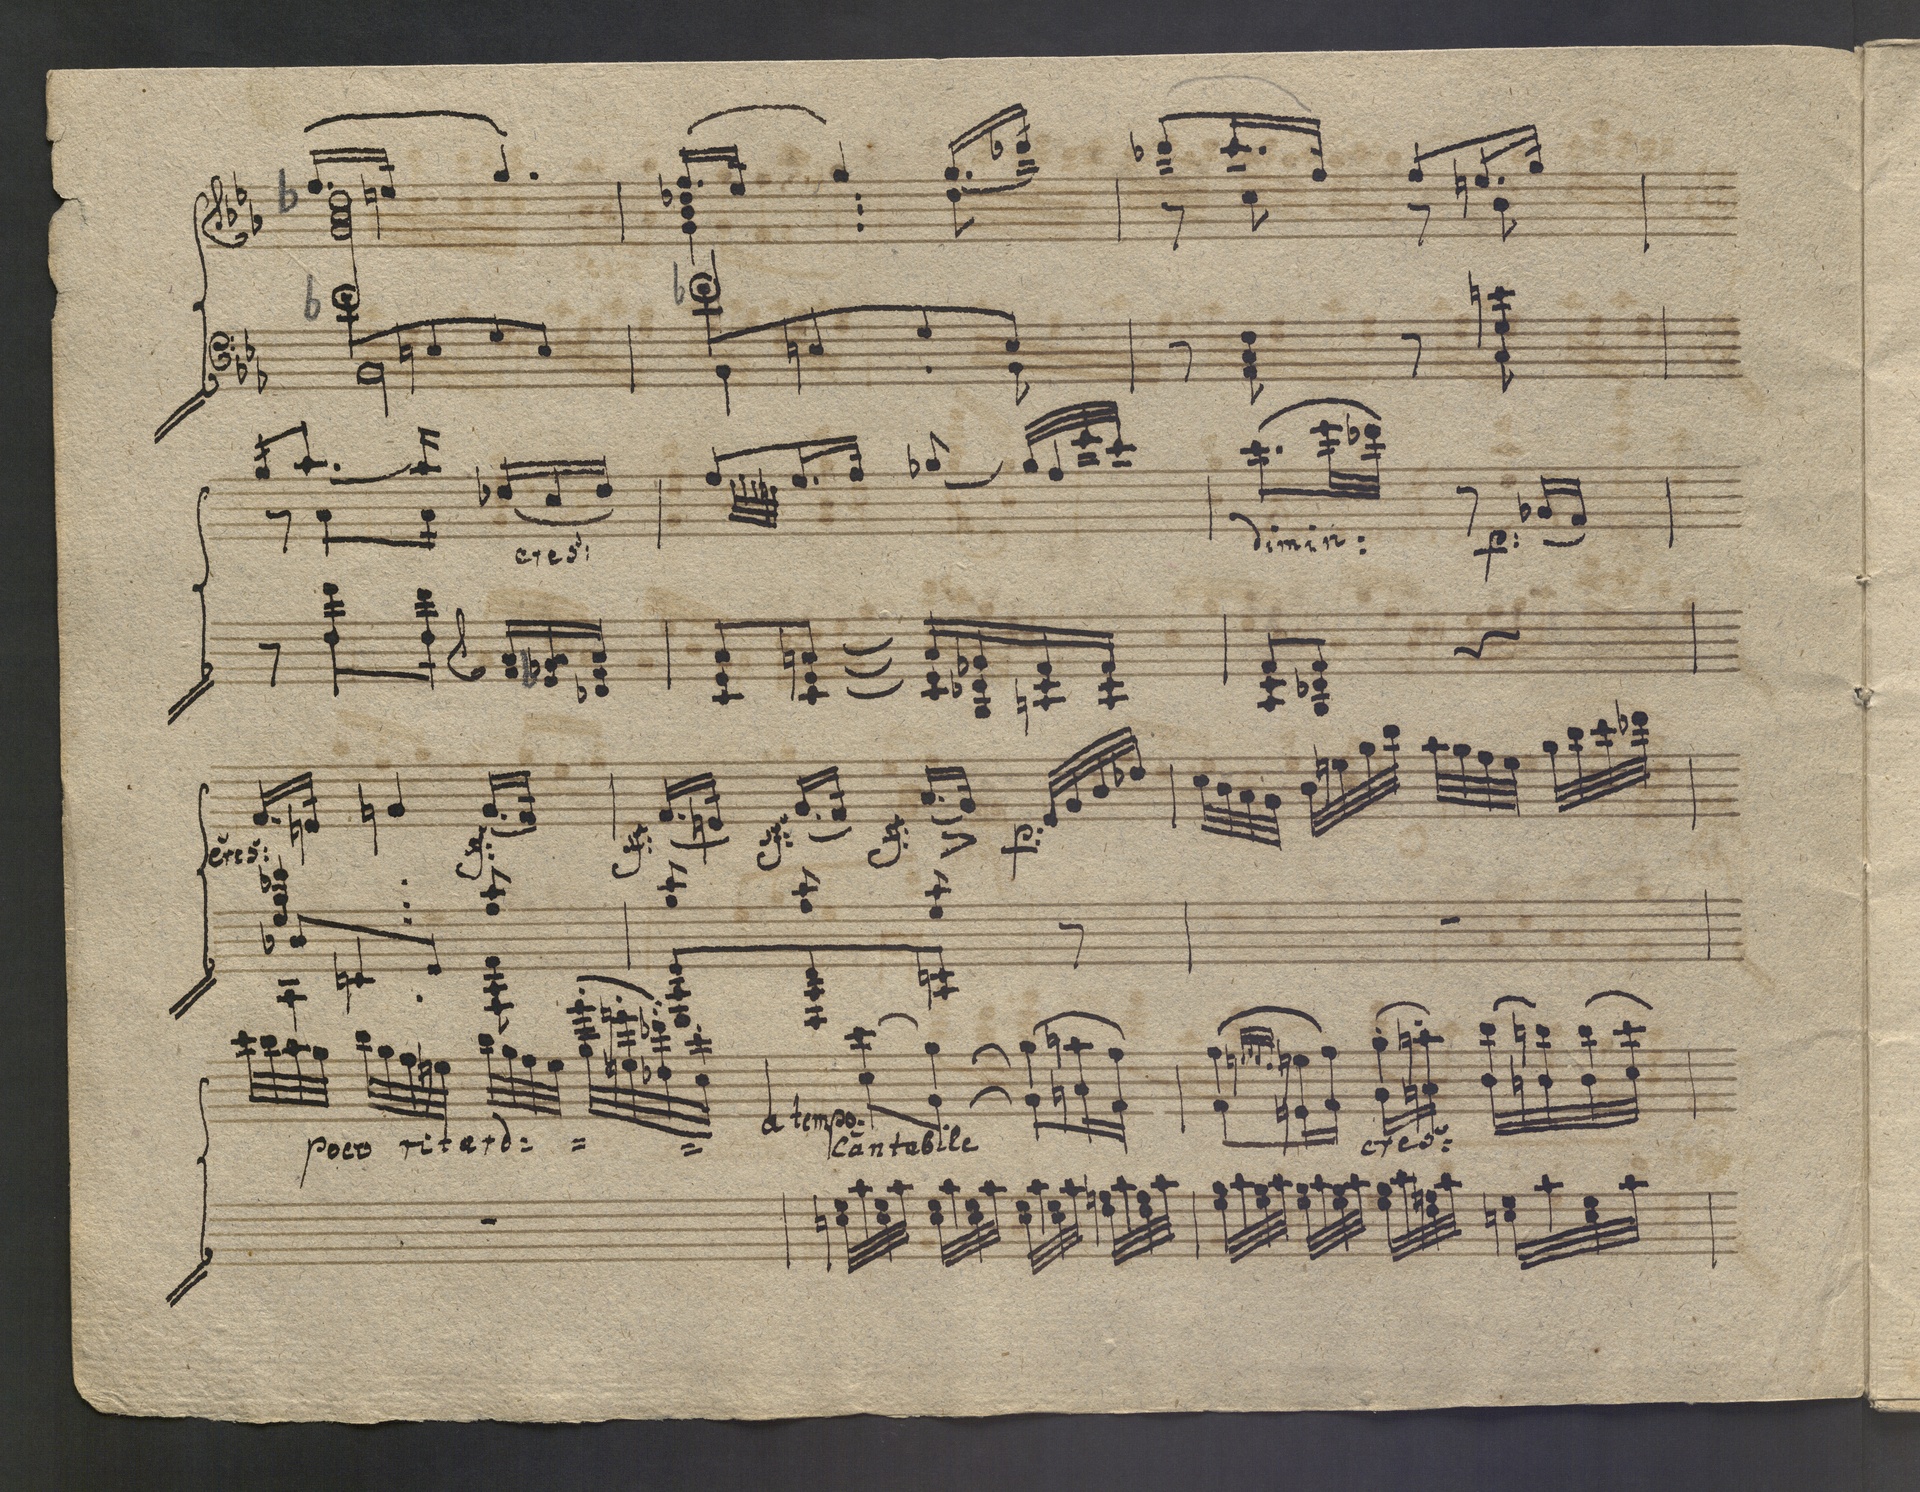 cres: dimin: p:
cres: sf: sf: sf: sf: p:
poco ritard: = =
a tempo.
Cantabile cres: